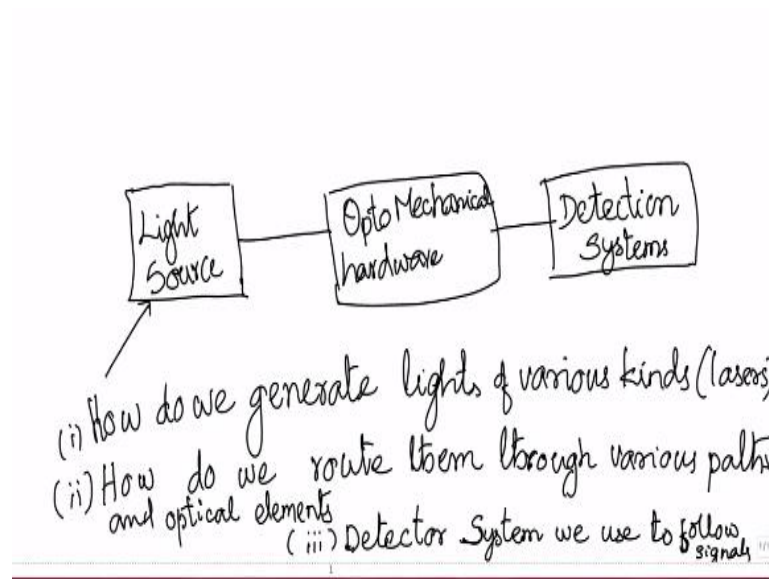 Light
Source
Opto Mechanical
hardware
Detection
Systems
(i) How do we generate lights of various kinds (lasers)
(ii) How do we route them through various paths
and optical elements
(iii) Detector System we use to follow
signals
1